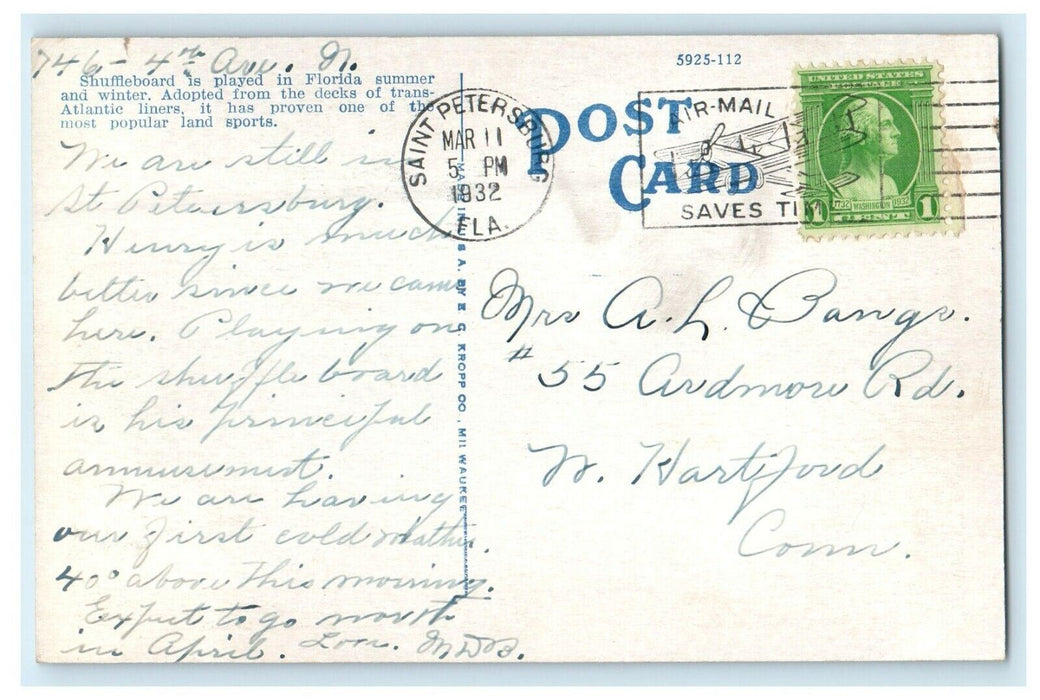 746 - 4th Ave. N.
Shuffleboard is played in Florida summer
and winter. Adopted from the decks of trans-
Atlantic liners, it has proven one of the
most popular land sports.
We are still in
St Petersburg.
Henry is much
better since we came
here. Playing on
the shuffle board
is his principal
amusement.
We are having
our first cold weather.
40° above this morning.
Expect to go north
in April. Love. M.D.B.
MADE IN U.S.A. BY E. C. KROPP CO., MILWAUKEE
SAINT PETERSBURG
MAR 11
5 PM
1932
FLA.
5925-112
POST
CARD
AIR-MAIL
SAVES TIM
UNITED STATES
POSTAGE
1732 WASHINGTON 1932
1 CENT 1
Mrs A. L. Bangs.
#55 Ardmore Rd.
W. Hartford
Conn.